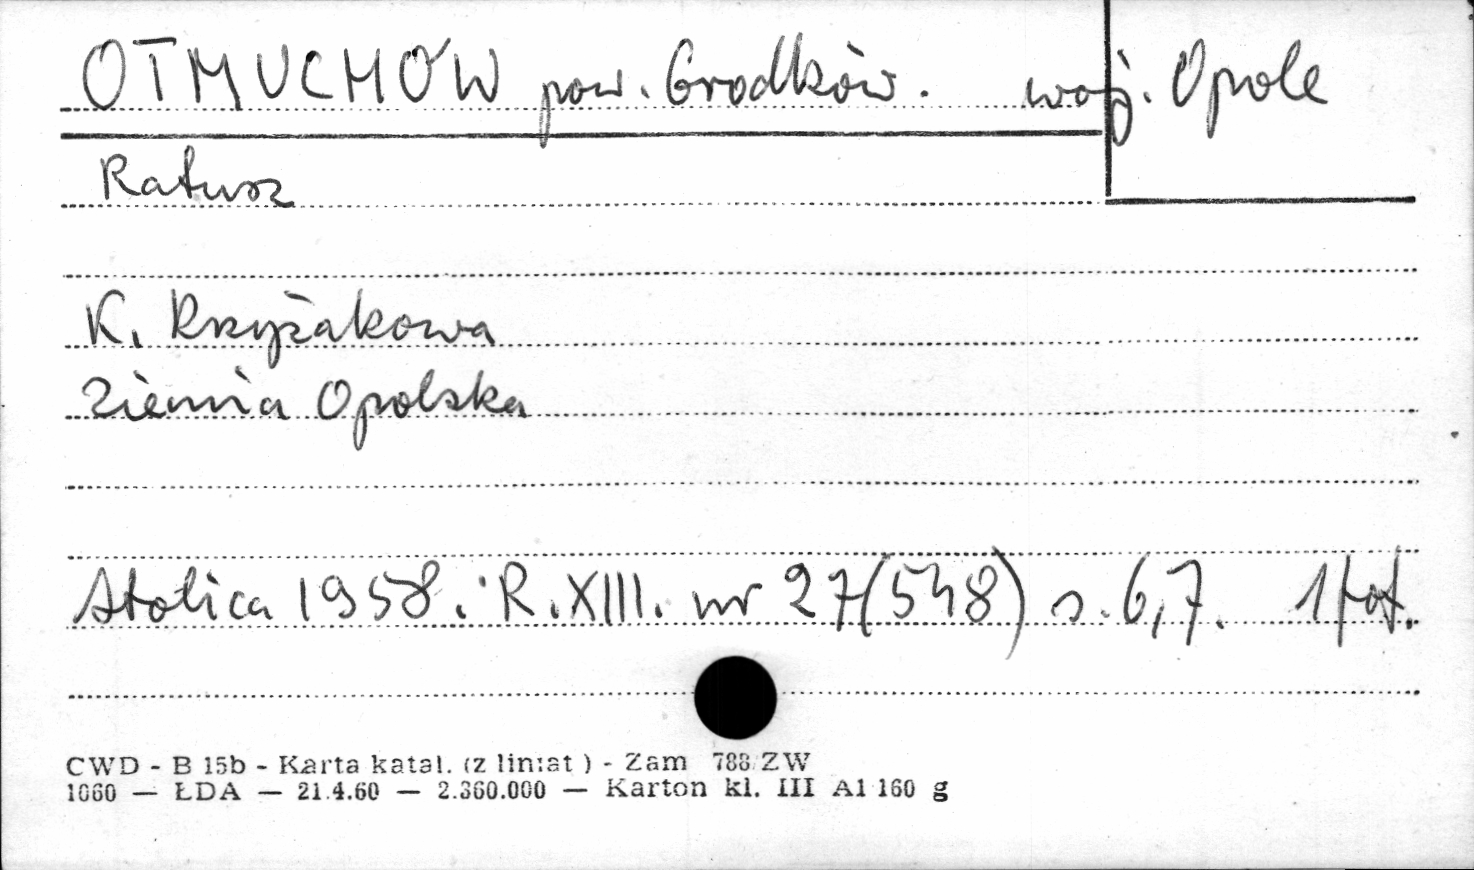 OTMUCHÓW pow. Grodków. woj. Opole
Ratusz
K. Krzyżakowa
Ziemia Opolska
Stolica 1958. R. XIII. nr 27(548) s. 6,7. 1 fot.
CWD - B 15b - Karta katal. (z limiat ) - Zam 788/ZW
1060 — ŁDA — 21.4.60 — 2.360.000 — Karton kl. III A1 160 g